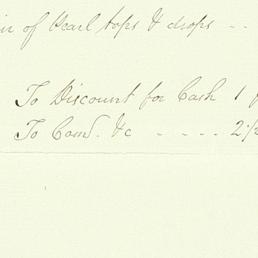 of Pearl tops & drops - -
To Discount for Cash 1
To Comn. &c - - - - 2½